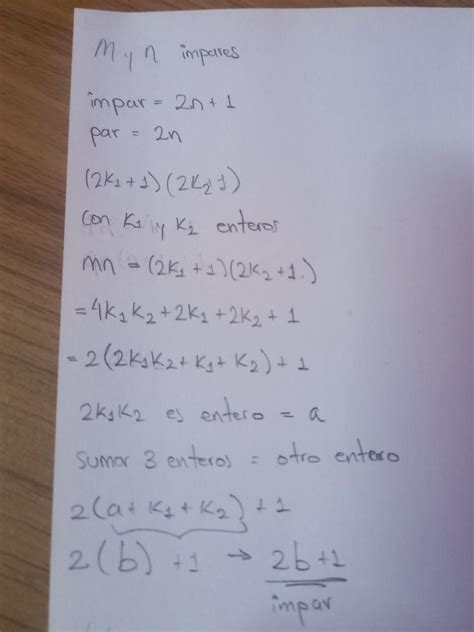 M y n impares
impar = 2n + 1
par = 2n
(2K₁+1)(2K₂ 1)
Con K₁ y K₂ enteros
mn = (2K₁+1)(2K₂+1.)
= 4K₁K₂ + 2K₁ + 2K₂ + 1
= 2(2K₁K₂ + K₁ + K₂) + 1
2K₁K₂ es entero = a
Sumar 3 enteros = otro entero
2(a + K₁ + K₂) + 1
2(b) +1 → 2b+1
impar